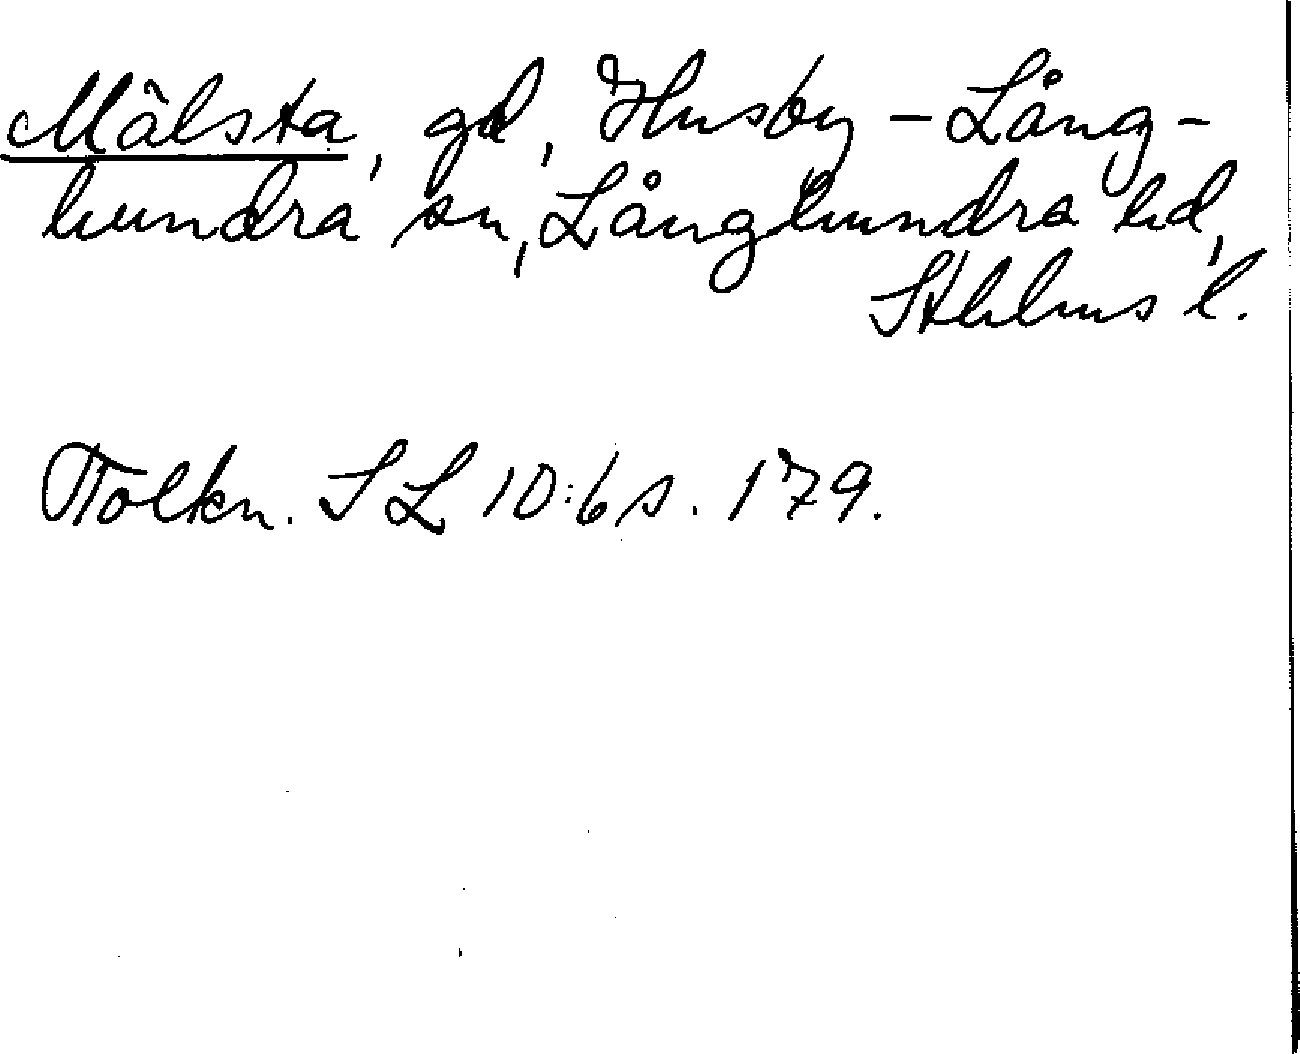 Mälsta, gd, Husby-Lång-
hundra sn, Långhundra hd,
Sthlms l.
Tolkn. SL 10:6 s. 179.